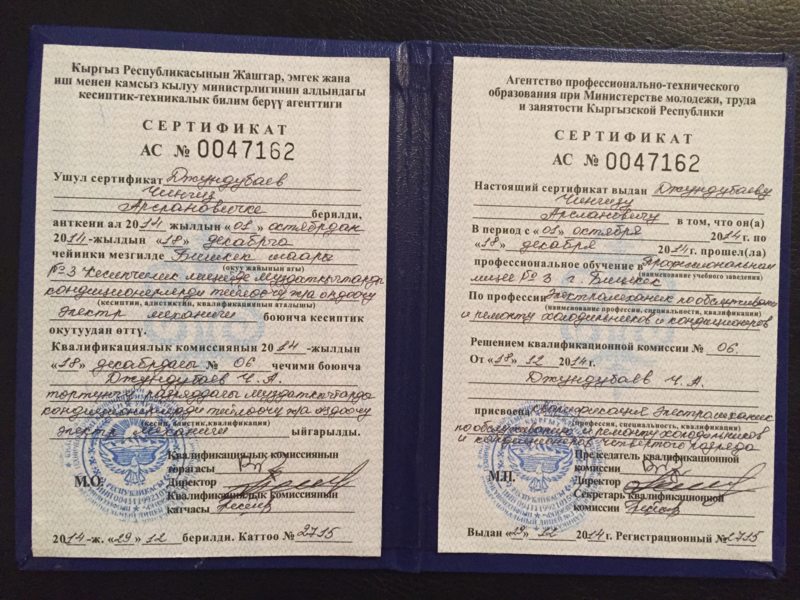 Кыргыз Республикасынын Жаштар, эмгек жана
иш менен камсыз кылуу министрлигинин алдындагы
кесиптик-техникалык билим берүү агенттиги
СЕРТИФИКАТ
АС № 0047162
Ушул сертификат Джундубаев
Чингиз
Арслановичке берилди,
анткени ал 2014 жылдын «01» октябрдан
2014-жылдын «18» декабрга
чейинки мезгилде Бишкек шаары
(окуу жайынын аты)
№3 Кесипчилик лицейде муздаткычтарды
кондиционерлерди тейлөөчү жа оңдоочу
(кесиптин, адистиктин, квалификациянын аталышы)
электр механиги боюнча кесиптик
окутуудан өттү.
Квалификациялык комиссиянын 2014-жылдын
«18» декабрдагы № 06 чечими боюнча
Джундубаев Ч.А.
төртүнчү разряддагы муздаткычтарды
кондиционерлерди тейлөөчү жа оңдоочу
(кесип, адистик, квалификация)
электр механиги ыйгарылды.
Квалификациялык комиссиянын
төрагасы
М.О. Директор
Квалификациялык комиссиянын
катчысы
2014-ж. «29» 12 берилди. Каттоо № 2715
Агентство профессионально-технического
образования при Министерстве молодежи, труда
и занятости Кыргызской Республики
СЕРТИФИКАТ
АС № 0047162
Настоящий сертификат выдан Джундубаеву
Чингизу
Арслановичу в том, что он(а)
В период с «01» октября 2014г. по
«18» декабря 2014г. прошел(ла)
профессиональное обучение в Профессиональном
(наименование учебного заведения)
лицее № 3 г. Бишкек
По профессии Электромеханик по обслуживанию
(наименование профессии, специальности, квалификации)
и ремонту холодильников и кондиционеров
Решением квалификационной комиссии № 06.
От «18» 12 2014г.
Джундубаев Ч.А.
присвоена квалификация Электромеханик
(профессия, специальность, квалификация)
по обслуживанию и ремонту холодильников
и кондиционеров четвертого разряда
Председатель квалификационной
комиссии
М.П. Директор
Секретарь квалификационной
комиссии
Выдан «29» 12 2014г. Регистрационный № 2715